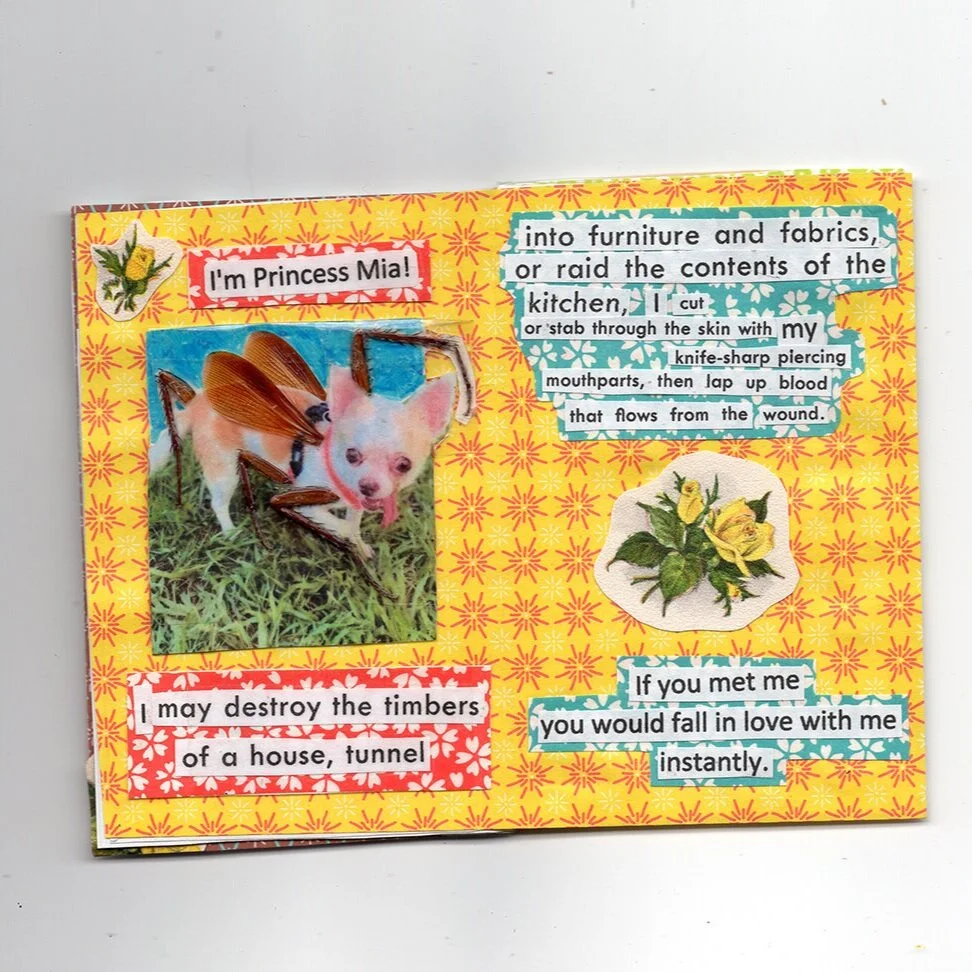 I'm Princess Mia!
I may destroy the timbers
of a house, tunnel
into furniture and fabrics,
or raid the contents of the
kitchen, I cut
or stab through the skin with my
knife-sharp piercing
mouthparts, then lap up blood
that flows from the wound.
If you met me
you would fall in love with me
instantly.